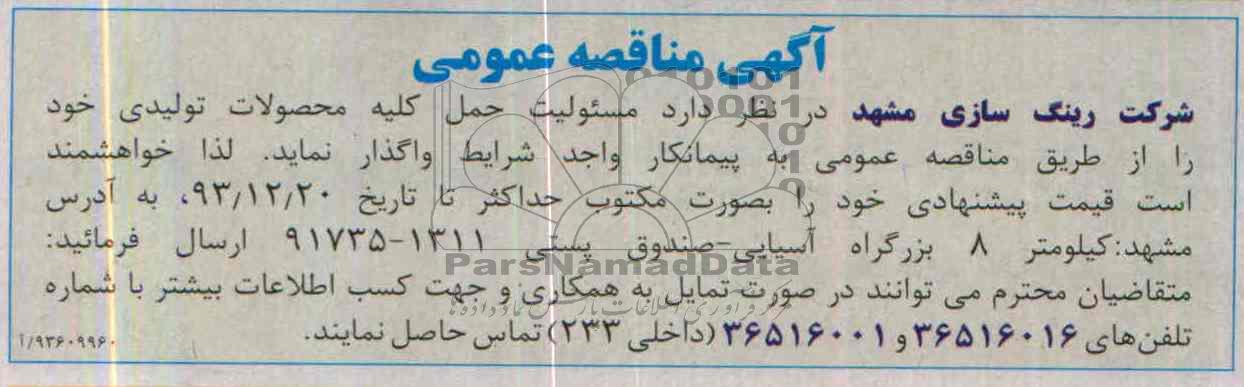 آگهی مناقصه عمومی
شرکت رینگ سازی مشهد در نظر دارد مسئولیت حمل کلیه محصولات تولیدی خود
را از طریق مناقصه عمومی به پیمانکار واجد شرایط واگذار نماید. لذا خواهشمند
است قیمت پیشنهادی خود را بصورت مکتوب حداکثر تا تاریخ ۹۳/۱۲/۲۰، به آدرس
مشهد: کیلومتر ۸ بزرگراه آسیایی-صندوق پستی ۱۳۱۱-۹۱۷۳۵ ارسال فرمائید:
متقاضیان محترم می توانند در صورت تمایل به همکاری و جهت کسب اطلاعات بیشتر با شماره
تلفن‌های ۳۶۵۱۶۰۱۶ و ۳۶۵۱۶۰۰۱ (داخلی ۲۳۳) تماس حاصل نمایند.
۹۳۶۰۹۹۶۰/آ
ParsNamadData